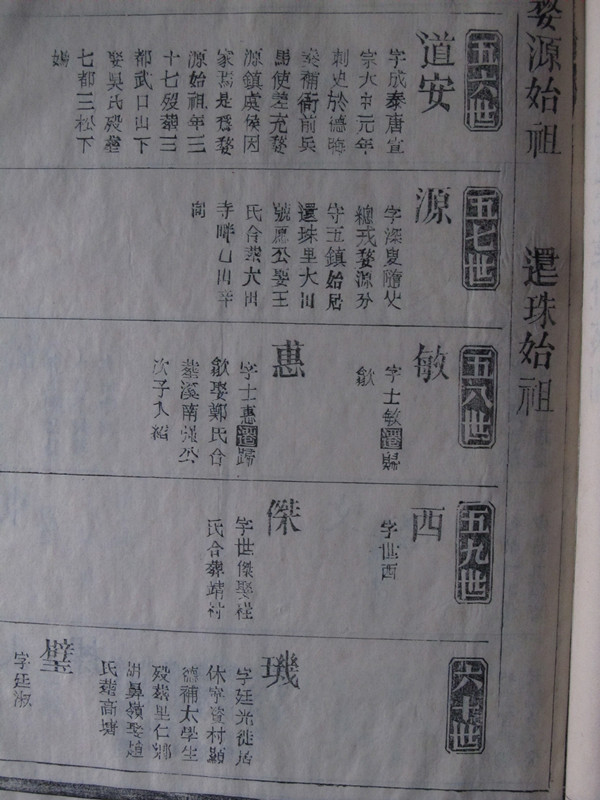 婺源始祖
還珠始祖
五六世
道安
字成泰唐宣
宗大中元年
刺史於德晦
奏補衙前兵
馬使差充婺
源鎮虞候因
家焉是爲婺
源始祖年三
十七歿葬三
都武口山下
娶吳氏歿葬
七都三松下
塢
五七世
源
字深慶隨父
總戎婺源分
守五鎮始居
還珠里大田
號應公娶王
氏合葬大田
寺畔乙山辛
向
五八世
敏
字士敏遷歸
歙
惠
字士惠遷歸
歙娶鄭氏合
葬溪南公
次子入紹
五九世
西
字世西
傑
字世傑娶程
氏合葬靖村
六十世
璣
字廷光徙居
休寧資村顯
德補太學生
歿葬里仁鄉
胡鼻嶺娶趙
氏葬高塘
璧
字廷淑